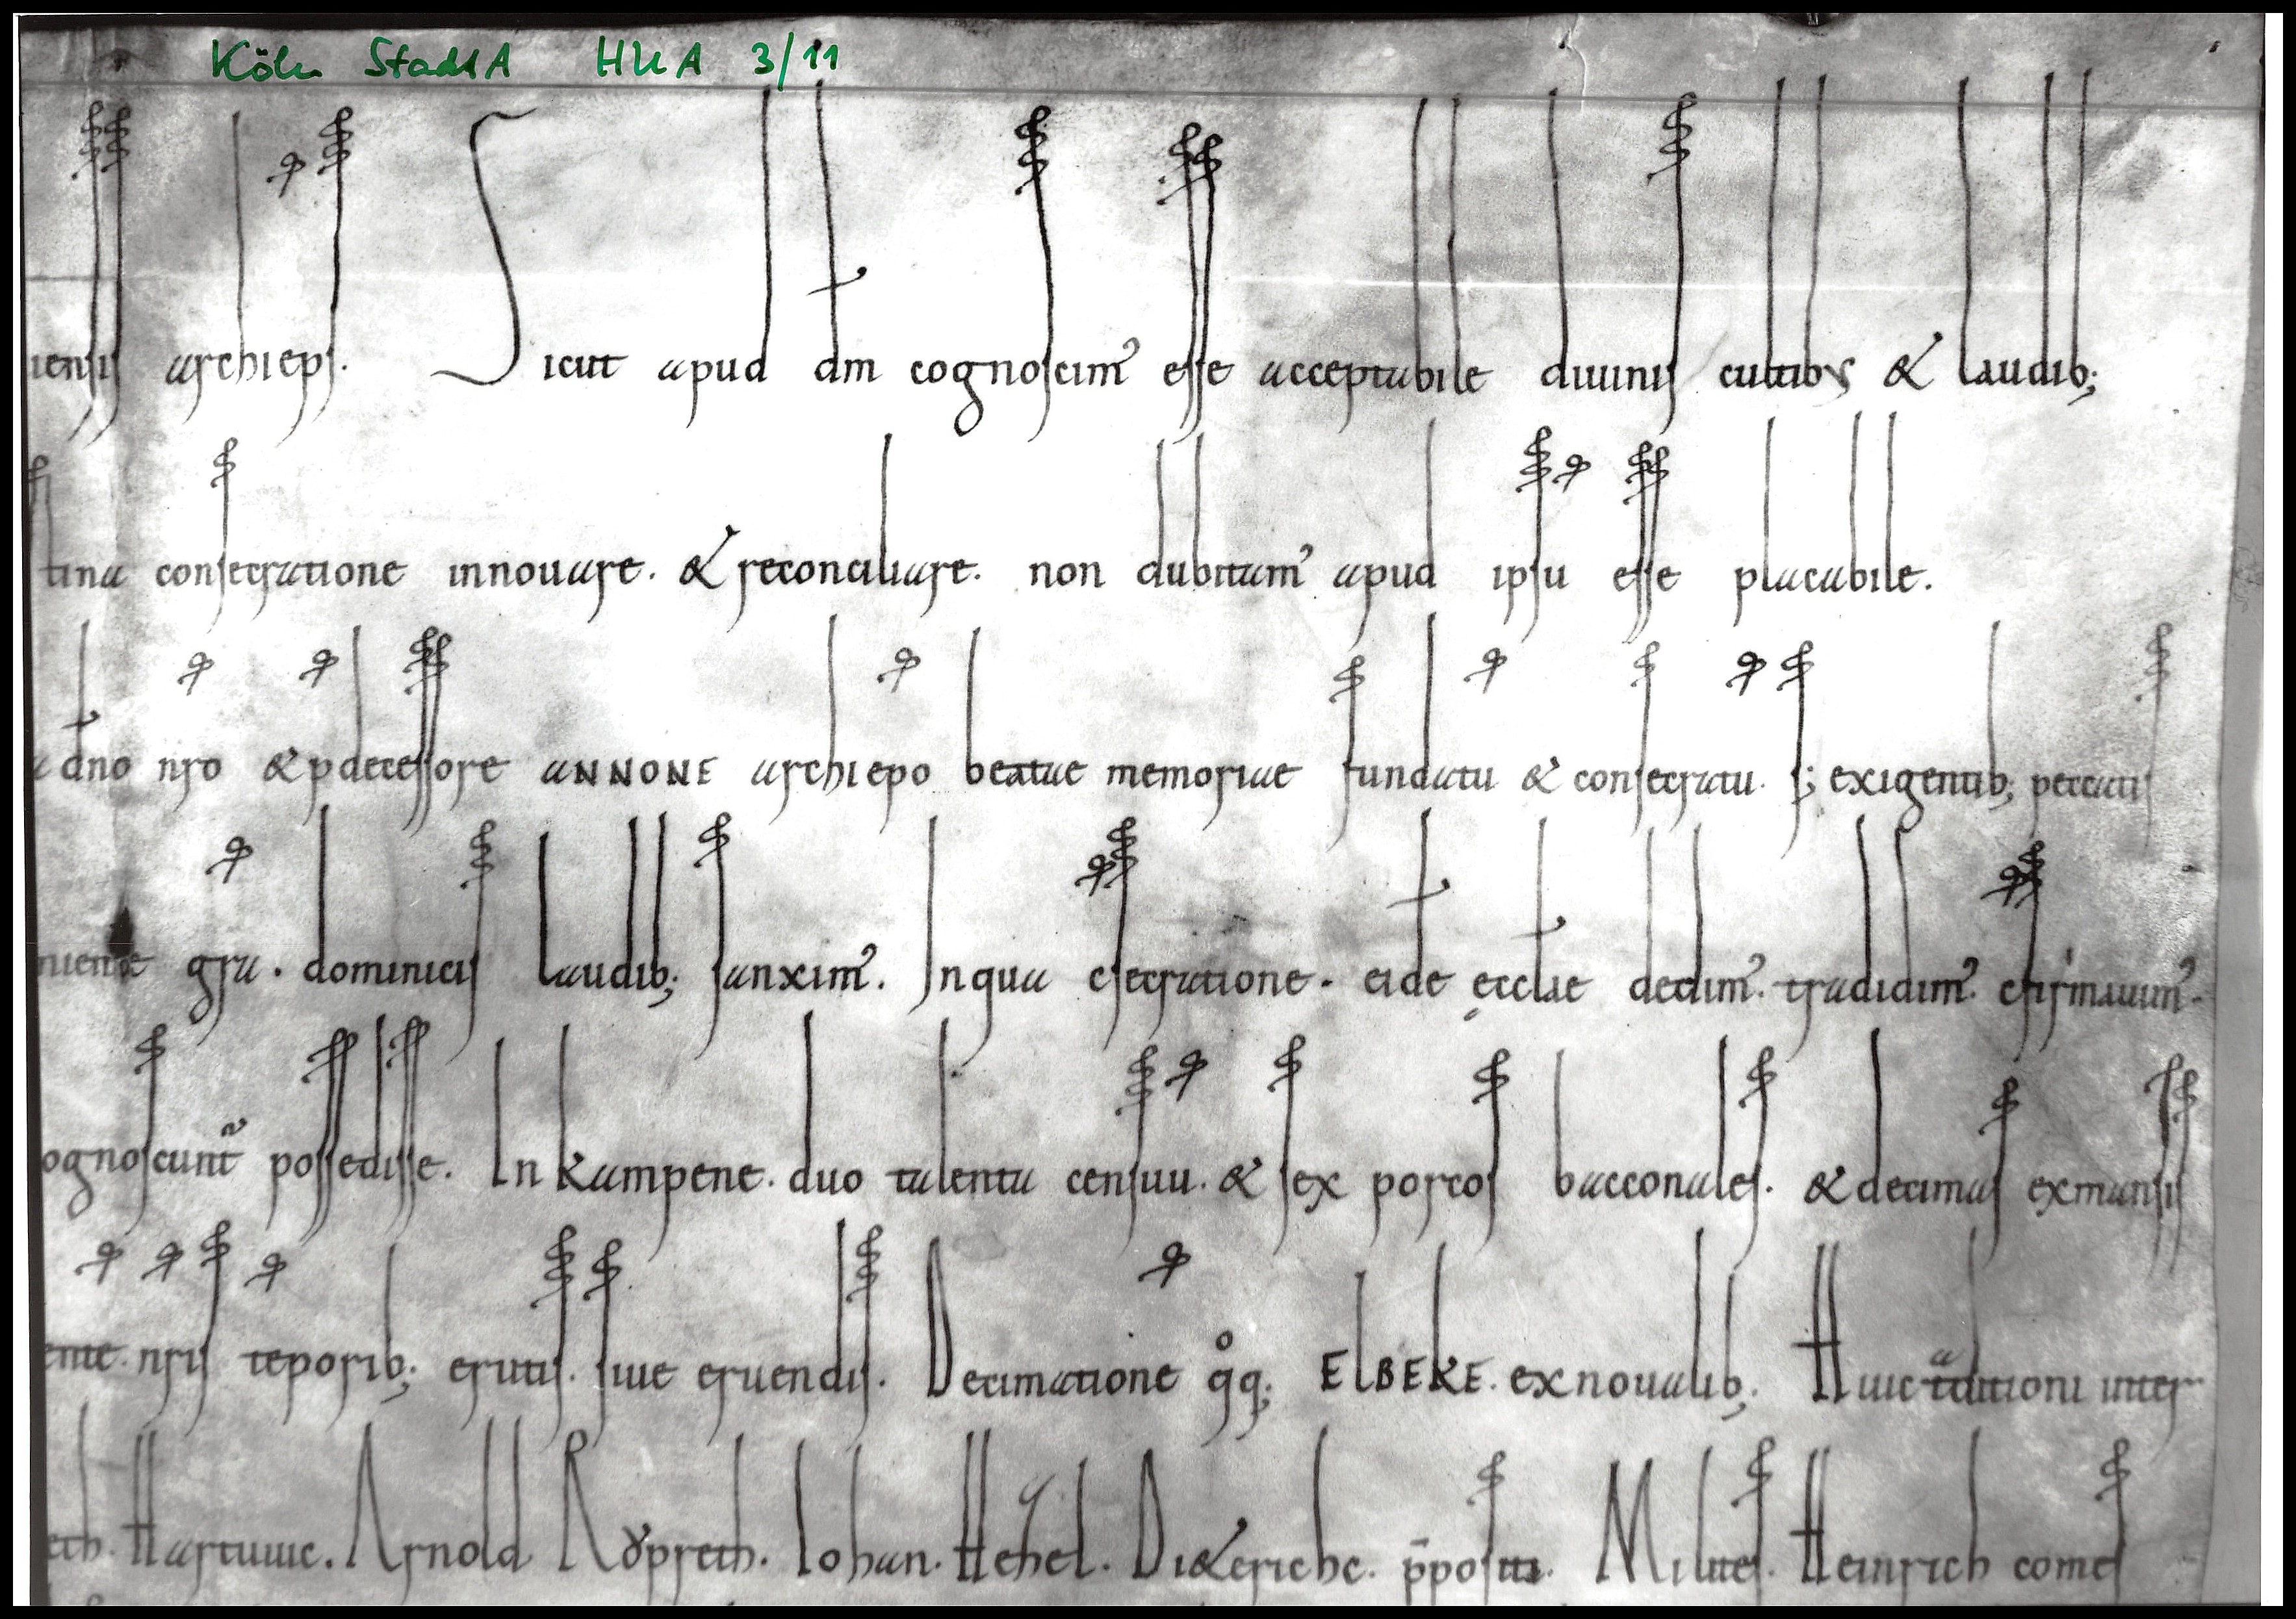 Köln StadtA HUA 3/11
iensis archieps. Sicut apud dm cognoscim᾽ esse acceptabile diuinis cultibus & laudib;
tina consecratione innouare. & reconciliare. non dubitam᾽ apud ipsu esse placabile.
a dno nro & pdecessore ANNONE archiepo beatae memoriae fundatu & consecratu. s; exigentib; peccatis
niente gra. dominicis laudib; sanxim᾽. In qua csecratione. eide ecclae dedim᾽. tradidim᾽. cfirmauim᾽.
ognoscunt᾽ possedisse. In kampene. duo talenta censuu. & sex porcos bacconales. & decimas ex mansis
ente nris teporib; erutis. siue eruendis. Decimatione qoq; ElBEKE. ex noualib; Huic taditioni inter
eth. Hartuuic. Arnold Ropreth. Iohan. Hezel. Dieterichc. ppositi. Milites. Heinrich comes